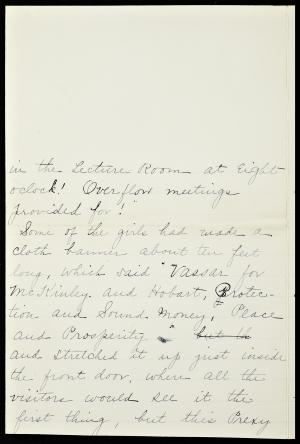 in the Lecture Room at Eight
oclock! Overflow meetings
provided for!"
Some of the girls had made a
cloth banner about ten feet
long, which said "Vassar for
McKinley and Hobart, Protec-
tion and Sound Money, Peace
and Prosperity" but th
and stretched it up just inside
the front door, where all the
visitors would see it the
first thing, but this Prexy